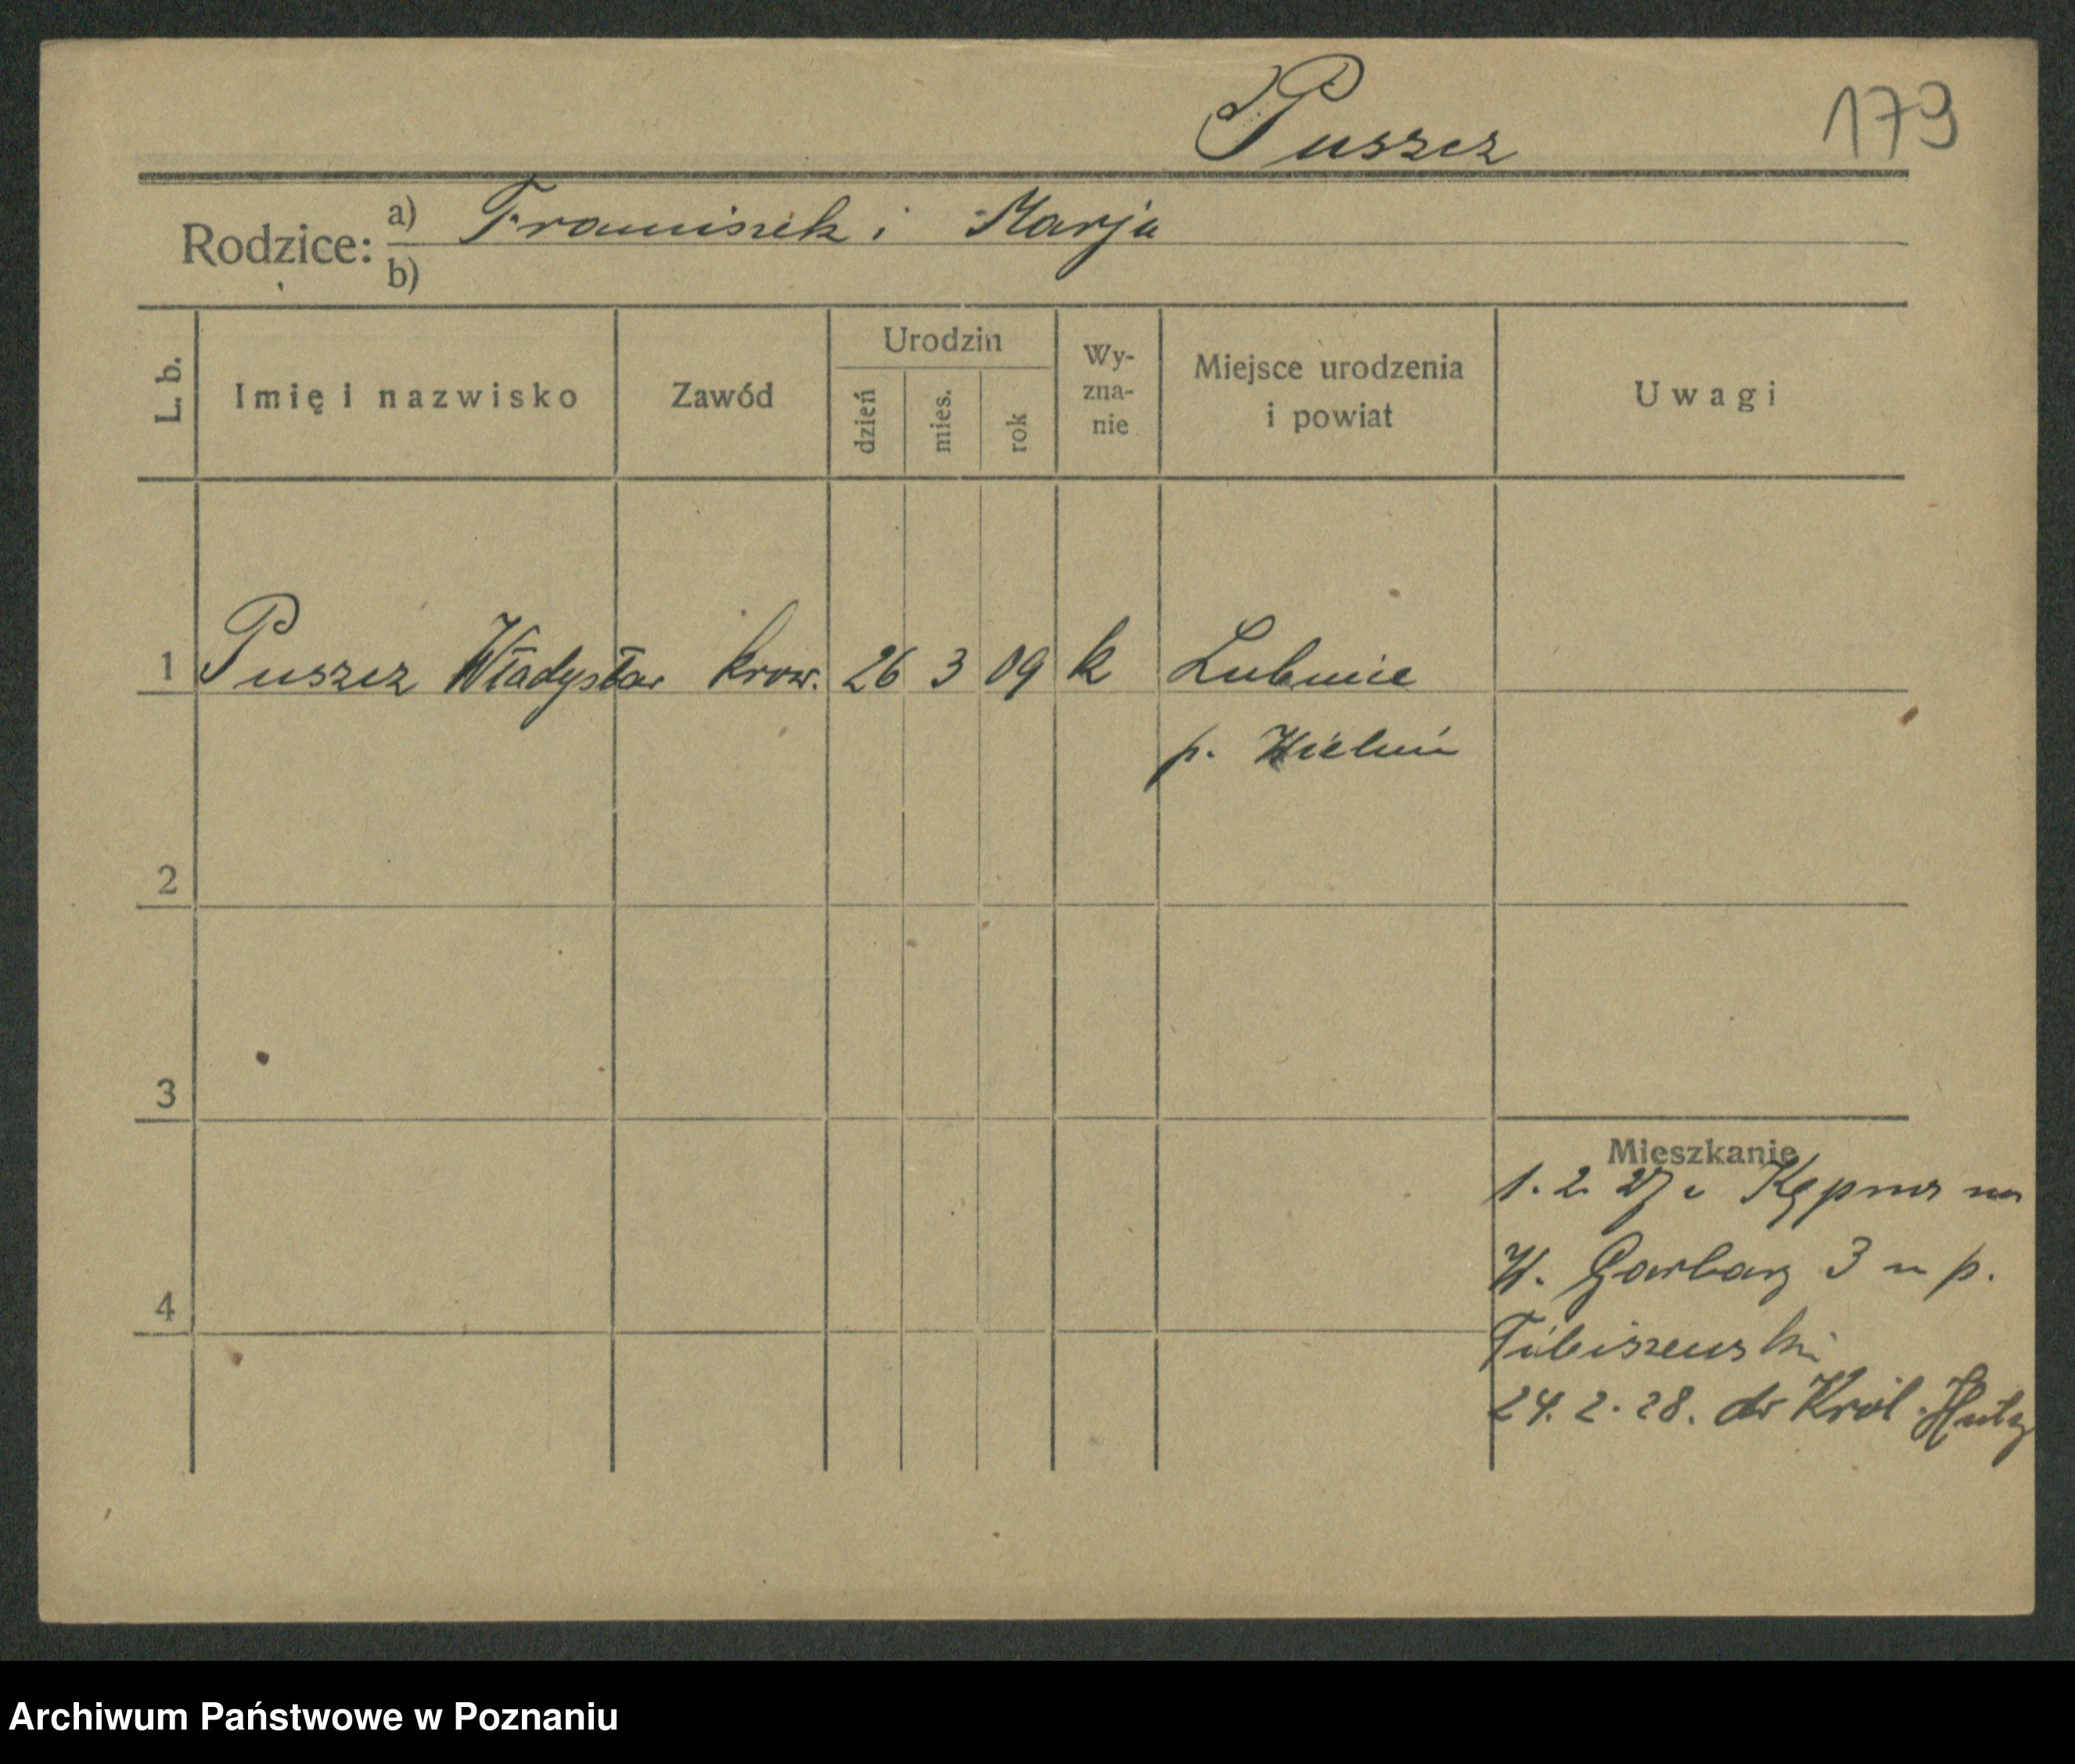 Puszcz
179
Rodzice: a) Franciszek i Marja
b)
L. b. Imię i nazwisko Zawód Urodzin dzień mies. rok Wy-zna-nie Miejsce urodzenia i powiat Uwagi
1 Puszcz Władysław kraw. 26 3 09 k Lubnie
p. Wieluń
2
3
Mieszkanie
1. 2. 27 z Kępna na
W. Garbary 3 u p.
4
24. 2. 28. do Król. Huty
Archiwum Państwowe w Poznaniu